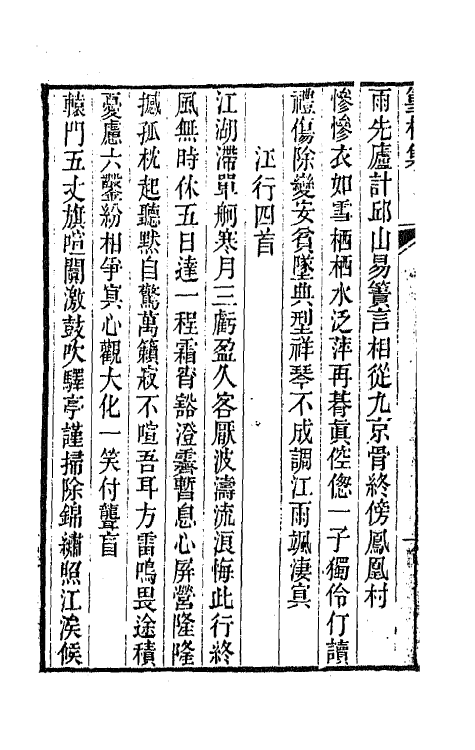 雨先廬計邱山易簀言相從九京骨終傍鳳凰村
慘慘衣如雪栖栖水泛萍再朞眞倥偬一子獨伶仃讀
禮傷除變安貧墜典型祥琴不成調江雨颯淒㝠
江行四首
江湖滯單舸寒月三虧盈久客厭波濤流浪悔此行終
風無時休五日達一程霜胷豁澄霽暫息心屏營隆隆
撼孤枕起聽默自驚萬籟寂不喧吾耳方雷鳴畏途積
憂慮六鑿紛相爭㝠心觀大化一笑付聾盲
轅門五丈旗喧闐激鼓吹驛亭謹掃除錦繡照江涘候